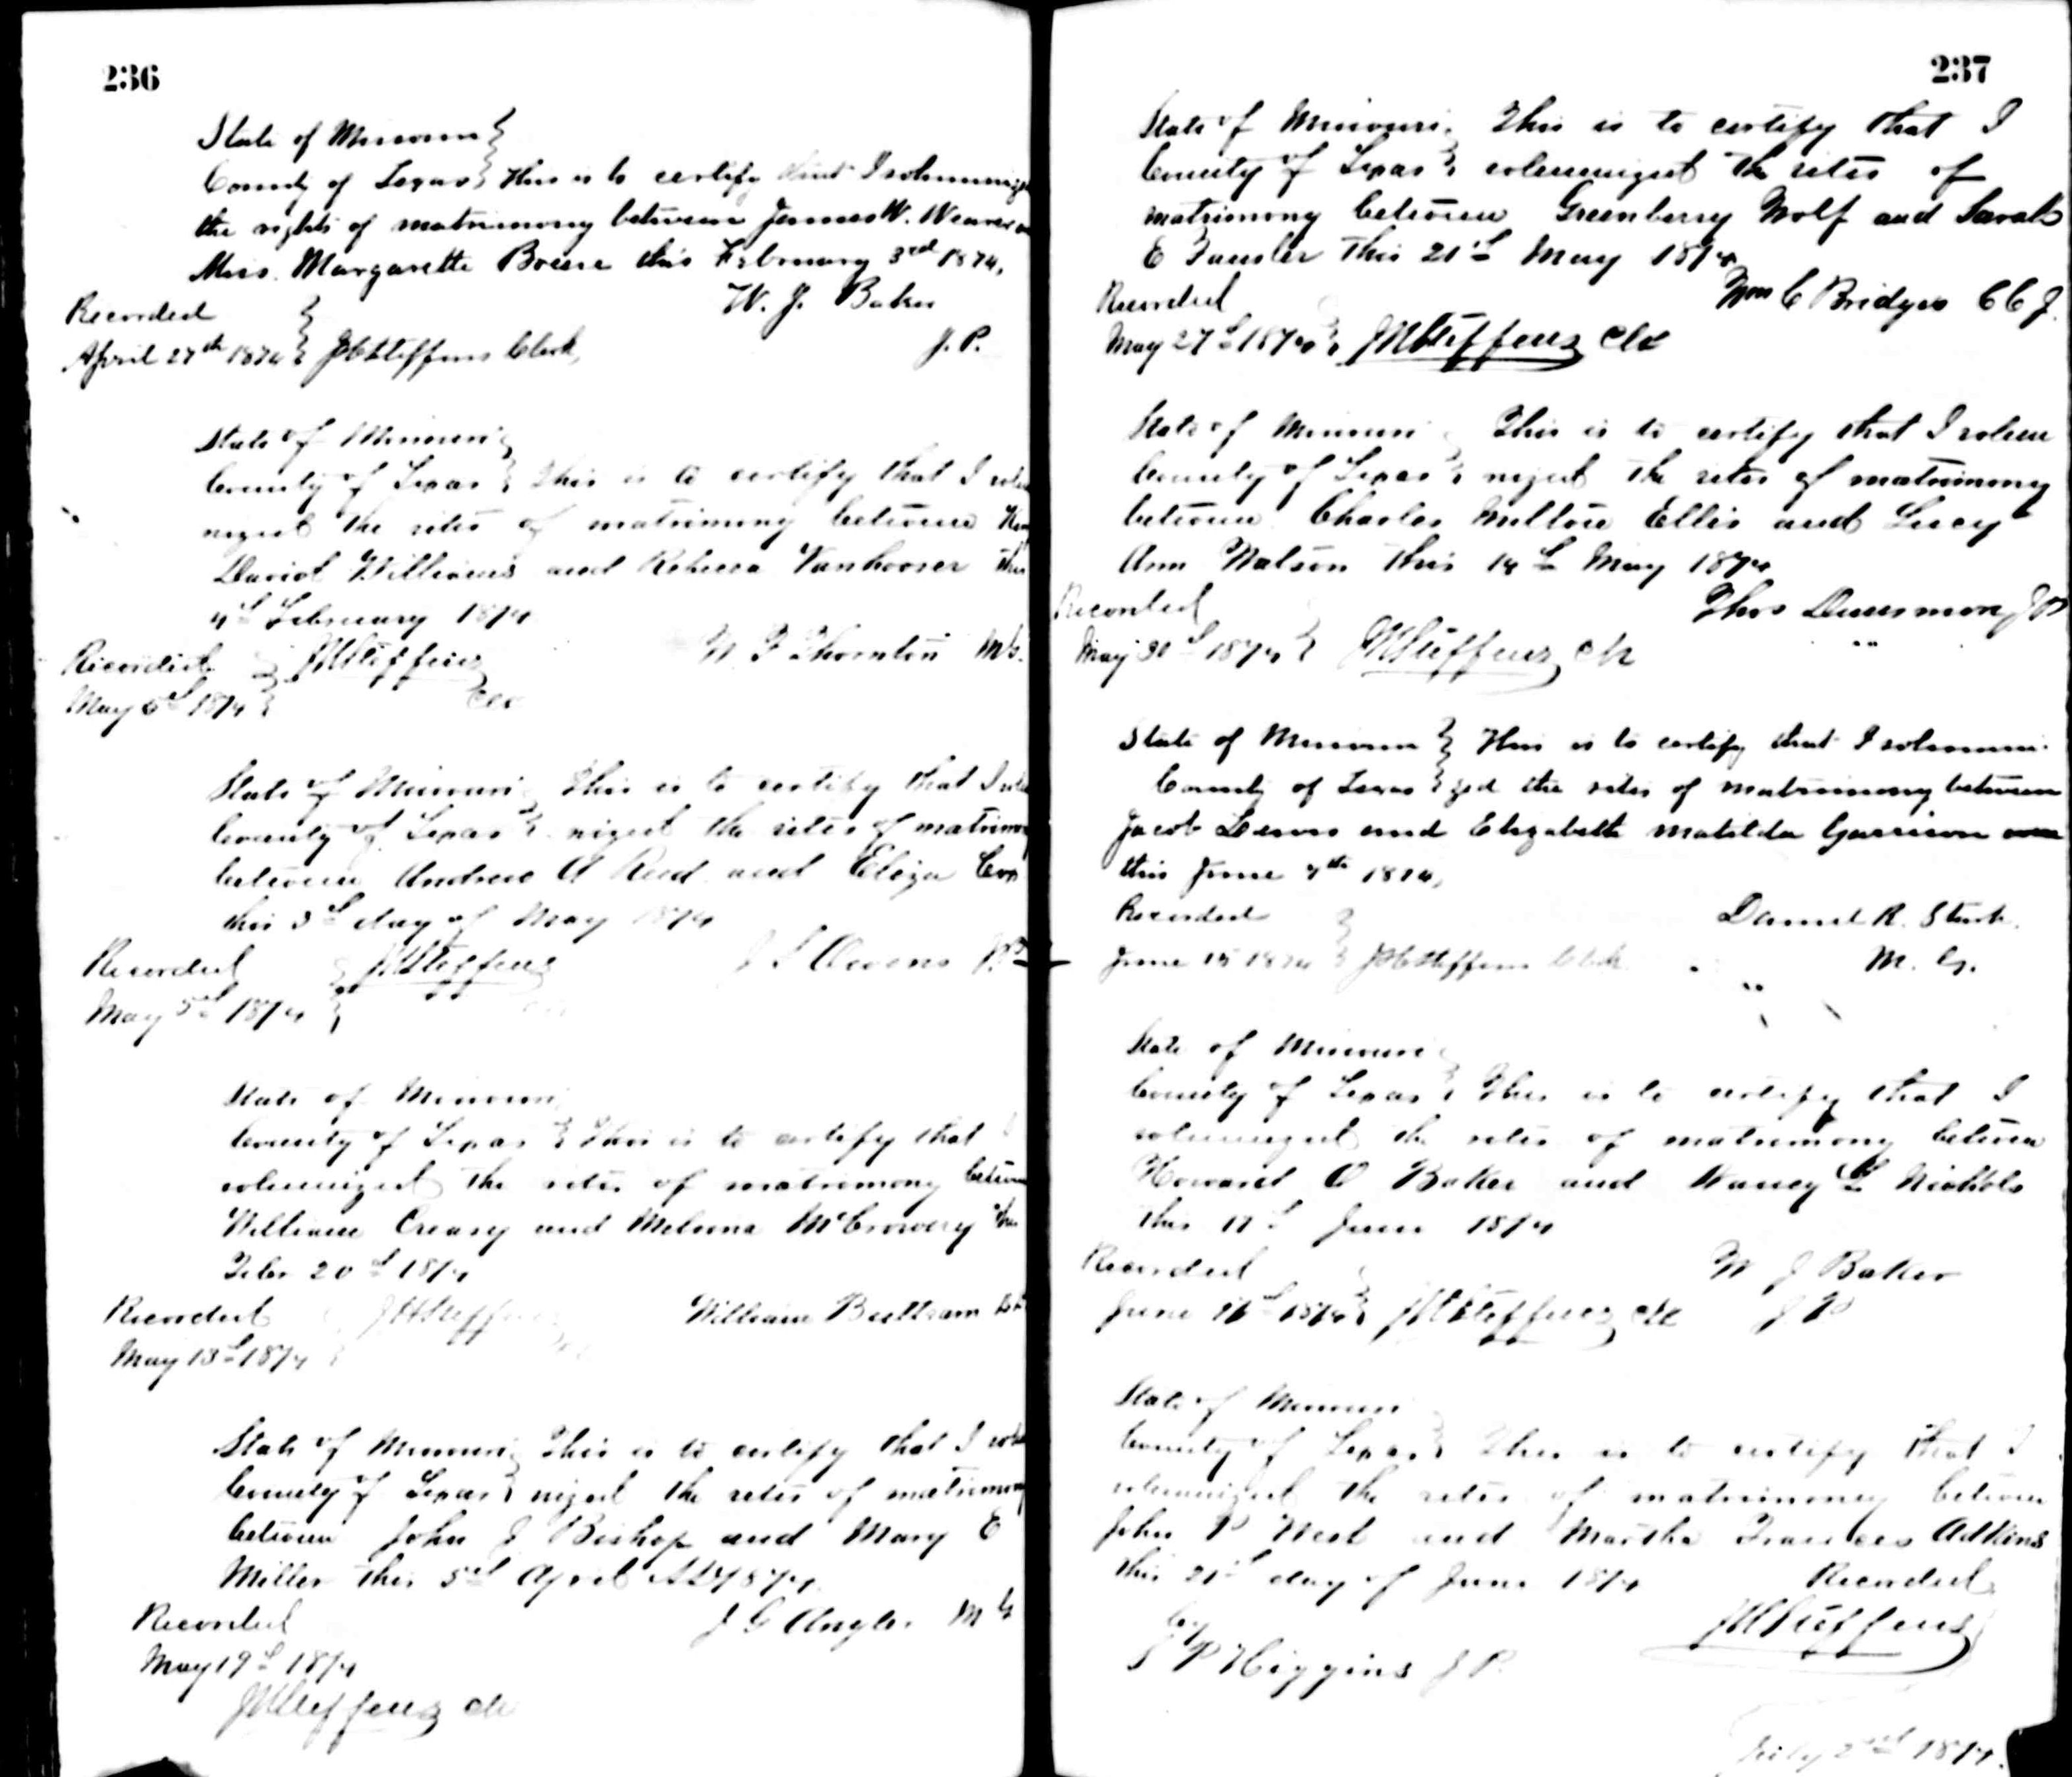 236
State of Missouri
County of Texas This is to certify that I solemniz
the rights of matrimony between James W. Weaver
Miss. Margarette Breese this February 3rd 1874,
W. J. Baker
Recorded
April 27th 1874 J H Steffens Clerk,
J. P.
State of Missouri
County of Texas This is to certify that I
nized the rites of matrimony between
David Williams and Rebecca Vanhooser this
4th February 1874
N F Thornton M G.
Recorded J H Steffens
May 5th 1874 Clk
State of Missouri This is to certify that I
County of Texas nized the rites of matrimony
between Andrew A Reed and Eliza
this 3d day of May 1874
J S Owens
Recorded J H Steffens
May 5th 1874
State of Missouri
County of Texas This is to certify that
solemnized the rites of matrimony between
William Creasy and Melvina McCrowery this
Feby 20th 1874
Recorded J H Steffens William Bultram
May 13th 1874
State of Missouri This is to certify that I
County of Texas nized the rites of matrimony
between John J Bishop and Mary E
Miller this 5th April AD 1874
Recorded J G M G
May 19th 1874
J H Steffens Clk
237
State of Missouri This is to certify that I
County of Texas solemnized the rites of
matrimony between Greenberry Wolf and Sarah
E this 21st May 1874
Wm C Bridges C C J.
Recorded
May 27th 1874 J H Steffens Clk
State of Missouri This is to certify that I solem
County of Texas nized the rites of matrimony
between Charles Milton Ellis and Lucy
Ann Watson this 14th May 1874
Thos J P
Recorded
May 30th 1874 J H Steffens Clk
State of Missouri This is to certify that I solemni
County of Texas zed the rites of matrimony between
Jacob Lewis and Elizabeth Matilda Garrison
this June 7th 1874,
Recorded Daniel R. Stark.
June 15 1874 J H Steffens Clerk M. G.
State of Missouri
County of Texas This is to certify that I
solemnized the rites of matrimony between
Howard O Baker and Nancy L Nichols
this 11th June 1874
Recorded W J Baker
June 16th 1874 J H Steffens Clk J P
State of Missouri
County of Texas This is to certify that I
solemnized the rites of matrimony between
John P West and Martha Frances Adkins
this 21st day of June 1874 Recorded
by J H Steffens
S P Higgins J P.
July 2nd 1874.